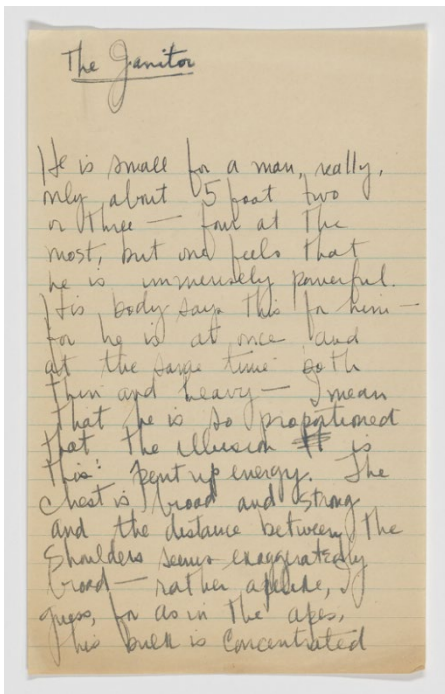 The Janitor
He is small for a man, really,
only about 5 foot two
or three — four at the
most, but one feels that
he is immensely powerful.
His body says this for him —
for he is at once and
at the same time both
thin and heavy — I mean
that he is so proportioned
that the illusion is
this: pent up energy. The
chest is broad and strong
and the distance between the
shoulders seems exaggeratedly
broad — rather apelike, I
guess, for as in the apes,
his bulk is concentrated